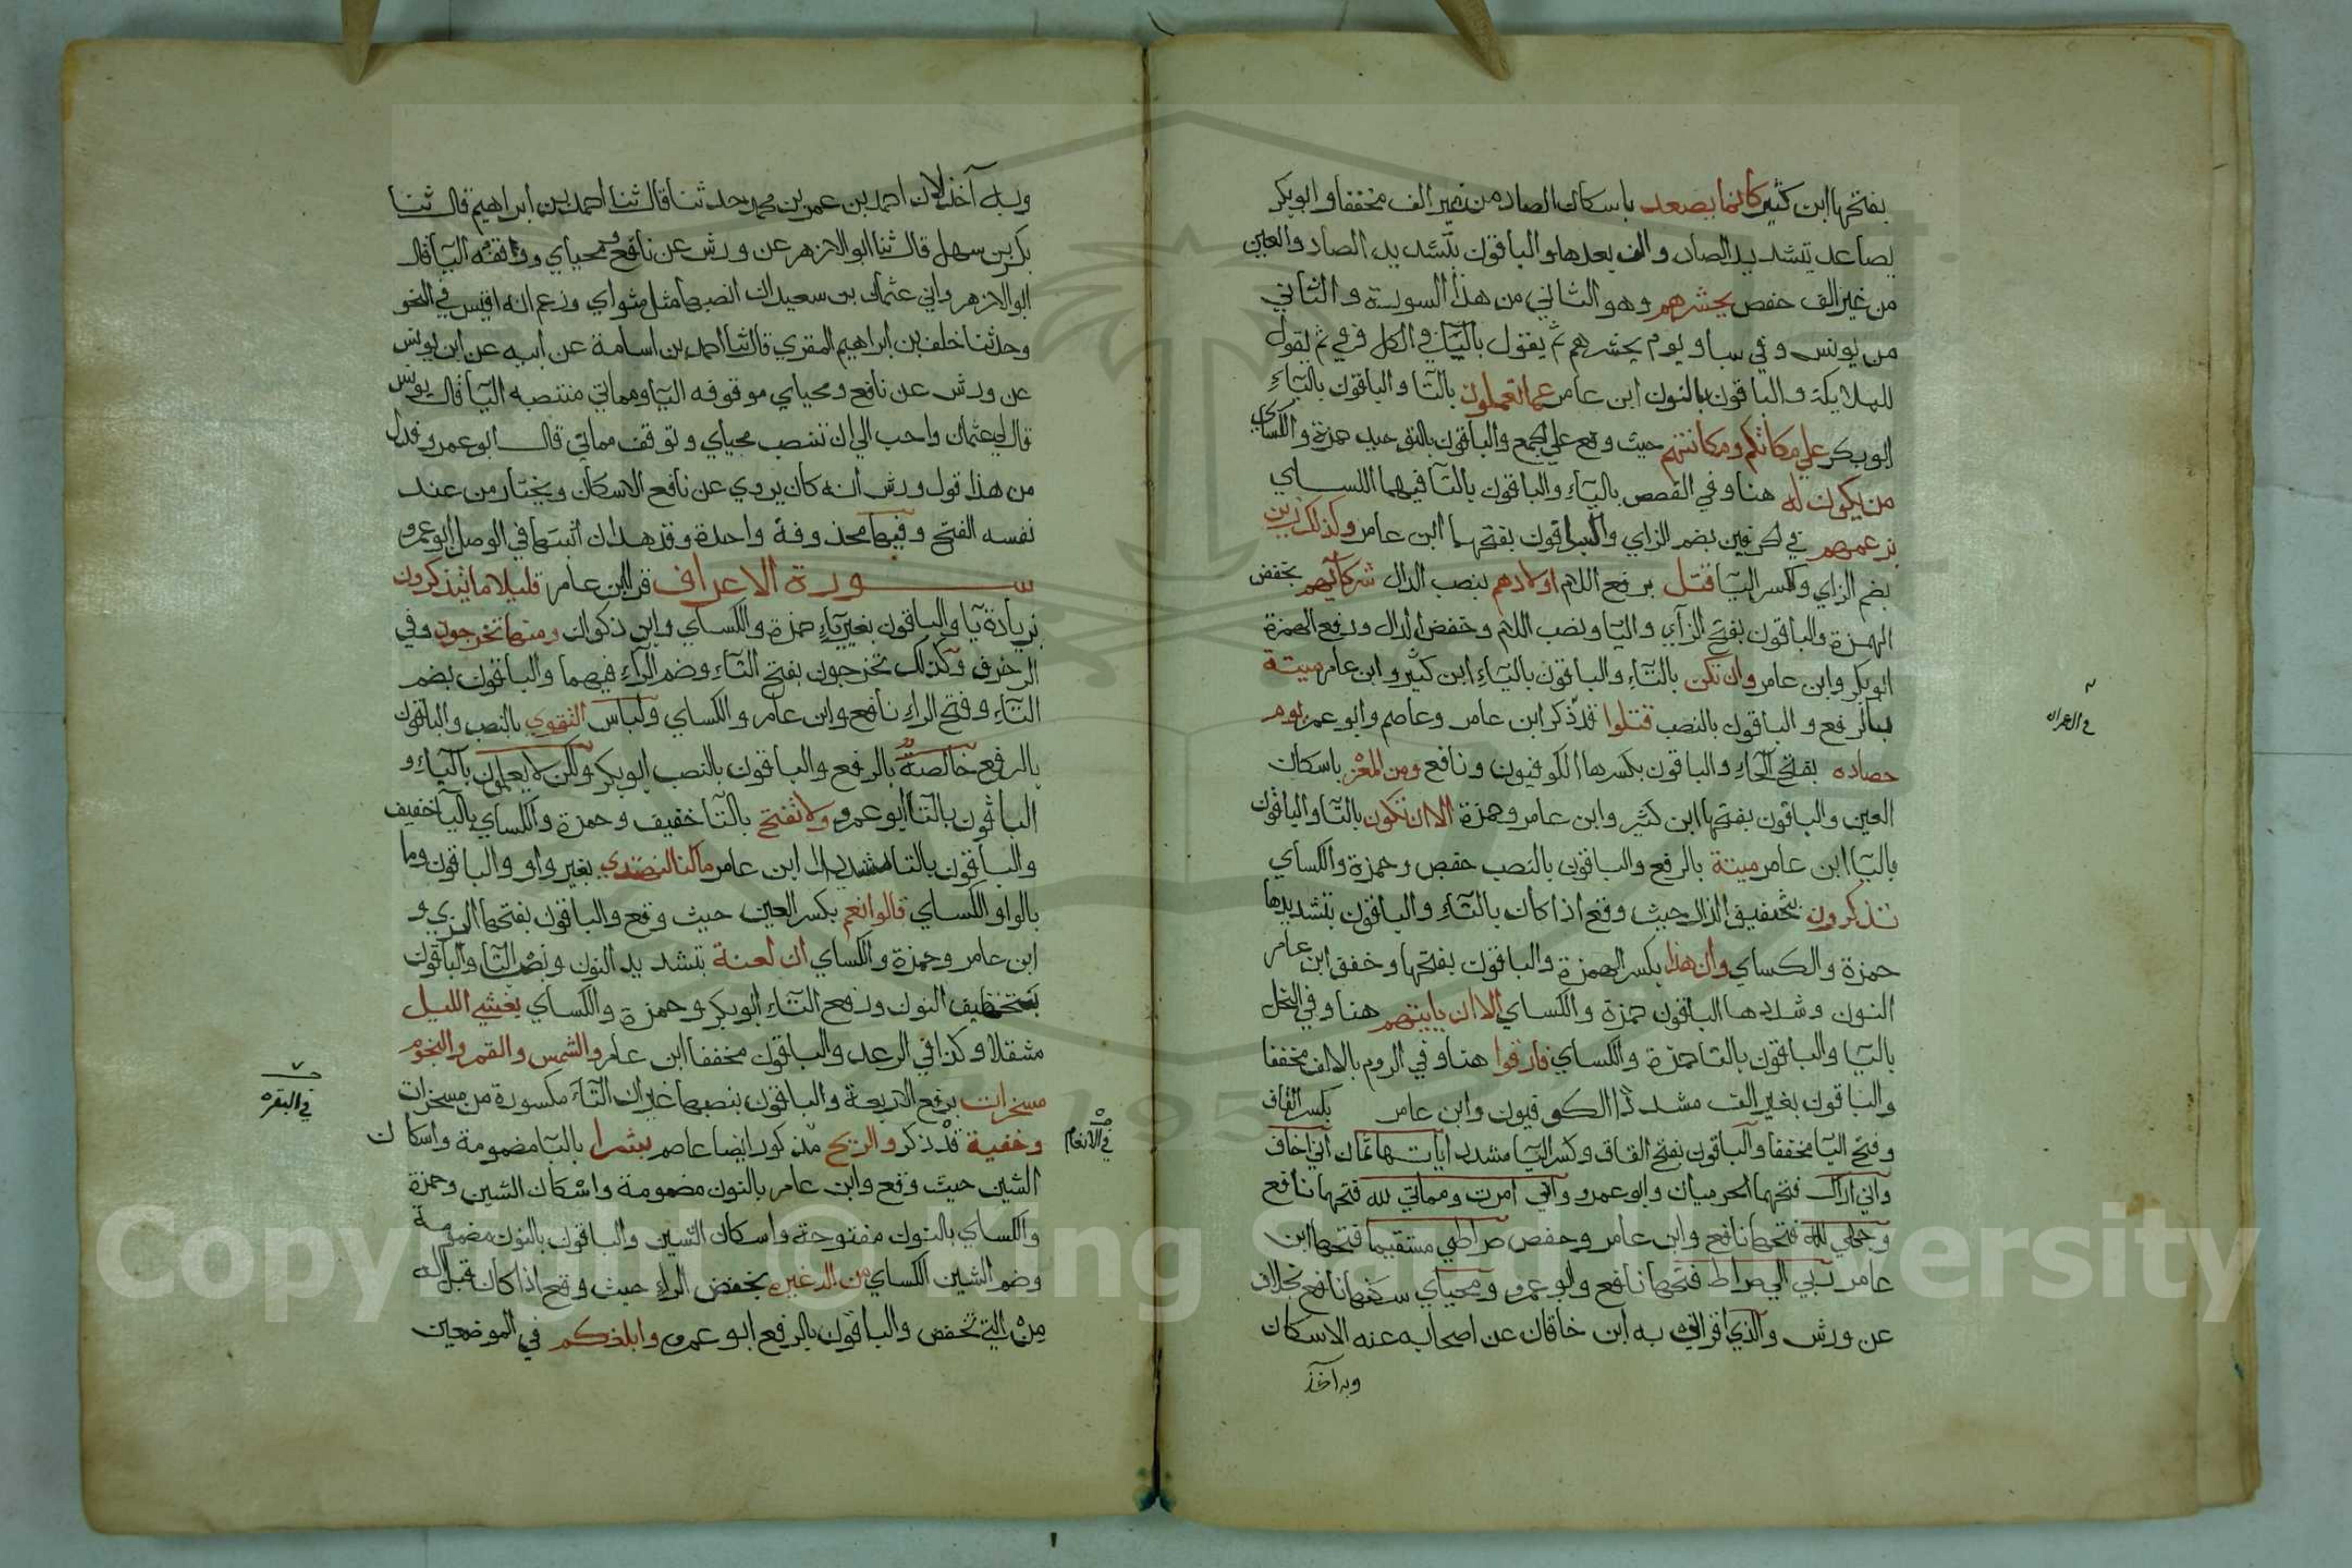 بفتحها ابن كثير كانما يصعد باسكان الصاد من غير الف مخففا وابو بكر
يصاعد بتشديد الصاد والف بعدها والباقون بتشديد الصاد والعين
من غير الف حفص يحشرهم وهو الثاني من هذه السورة والثاني
من يونس وفي سبا ويوم يحشرهم ثم يقول باليآ في الكل فرفي ثم يقول
للملايكة والباقون بالنون ابن عامر عما تعملون بالتا والباقون باليآء
ابو بكر علي مكاناتكم ومكاناتهم حيث وقع علي الجمع والباقون بالتوحيد حمزة والكساي
من يكون له هنا وفي القصص باليآء والباقون بالتآ فيهما الكساي
بزعمهم في الحرفين بضم الزاي والباقون بفتحها ابن عامر وكذلك زين
بضم الزاي وكسر اليآ قتل برفع اللام اولادهم بنصب الدال شركآئهم بخفض
الهمزة والباقون بفتح الزآي واليا ونصب اللام وخفض الدال ورفع الهمزة
ابو بكر وابن عامر وان تكن بالتآء والباقون باليآء ابن كثير وابن عامر ميتة
بالرفع والباقون بالنصب قتلوا قد ذكر ابن عامر وعاصم وابو عمرو يوم
حصاده بفتح الحآء والباقون بكسرها الكوفيون ونافع ومن المعز باسكان
العين والباقون بفتحها ابن كثير وابن عامر وحمزة الا ان تكون بالتآ والباقون
باليآ ابن عامر ميتة بالرفع والباقون بالنصب حفص وحمزة والكساي
تذكرون بتخفيف الذال حيث وقع اذا كان بالتآء والباقون بتشديدها
حمزة والكساي وان هذا بكسر الهمزة والباقون بفتحها وخفف ابن عامر
النون وشددها الباقون حمزة والكساي الا ان ياتيهم هنا وفي النحل
باليآ والباقون بالتا حمزة والكساي فارقوا هنا وفي الروم بالالف مخففا
والباقون بغير الف مشددا الكوفيون وابن عامر بكسر القاف
وفتح اليآ مخففا والباقون بفتح القاف وكسر اليآ مشددا ياتها ثمان اني اخاف
واني اراك فتحهما الحرميان وابو عمرو واني امرت ومماتي لله فتحها نافع
وجهي لله فتحها نافع وابن عامر وحفص صراطي مستقيما فتحها ابن
عامر ربي الي صراط فتحها نافع وابو عمرو ومحياي سكنها نافع بخلاف
عن ورش والذي اقراني به ابن خاقان عن اصحابه عنه الاسكان
وبه آخذ
في ال عمران
وبه آخذ لان احمد بن عمر بن محمد حدثنا قال ثنا احمد بن ابراهيم قال ثنا
بكر بن سهل قال ثنا ابو الازهر عن ورش عن نافع ومحياي وواقفه اليآ قال
ابو الازهر واني عثمان بن سعيد ان انصبها مثل مثواي وزعم انه اقيس في النحو
وحدثنا خلف بن ابراهيم المقري قال ثنا احمد بن اسامة عن ابيه عن ابن يونس
عن ورش عن نافع ومحياي موقوفه اليا ومماتي منتصبه اليآ قال يونس
قال لي عثمان واحب الي ان تنصب محياي وتوقف مماتي قال ابو عمرو فدل
من هذا قول ورش انه كان يروي عن نافع الاسكان ويختار من عند
نفسه الفتح وفيها محذوفة واحدة وقد هدان اثبتها في الوصل ابو عمرو
سورة الاعراف قرا ابن عامر قليلا ما يتذكرون
بزيادة يا والباقون بغير يآء حمزة والكساي وابن ذكوان ومنها تخرجون وفي
الزخرف وكذلك تخرجون بفتح التآء وضم الرآء فيهما والباقون بضم
التآء وفتح الرآء نافع وابن عامر والكساي ولباس التقوي بالنصب والباقون
بالرفع خالصة بالرفع والباقون بالنصب ابو بكر ولكن لا يعلمون باليآء و
الباقون بالتآ ابو عمرو ولا تفتح بالتآ خفيف وحمزة والكساي باليآ خفيف
والباقون بالتا مشددا ابن عامر ما كنا لنهتدي بغير واو والباقون وما
بالواو الكساي قالوا نعم بكسر العين حيث وقع والباقون بفتحها البزي و
ابن عامر وحمزة والكساي ان لعنة بتشديد النون ونصب التا والباقون
بتخفيف النون ورفع التآء ابو بكر وحمزة والكساي يغشي الليل
مثقلا وكذا في الرعد والباقون مخففا ابن عامر والشمس والقمر والنجوم
مسخرات برفع الاربعة والباقون بنصبها غير ان التآء مكسورة من مسخرات
وخفية قد ذكر والريح مذكور ايضا عاصم بشرا بالبآ مضمومة واسكان
الشين حيث وقع وابن عامر بالنون مضمومة واسكان الشين وحمزة
والكساي بالنون مفتوحة واسكان الشين والباقون بالنون مضمومة
وضم الشين الكساي من اله غيره بخفض الرآء حيث وقع اذا كان قبل اله
من التي تخفض والباقون بالرفع ابو عمرو وابلغكم في الموضعين
في البقره
في الانعام
Copyright © King Saud University
195